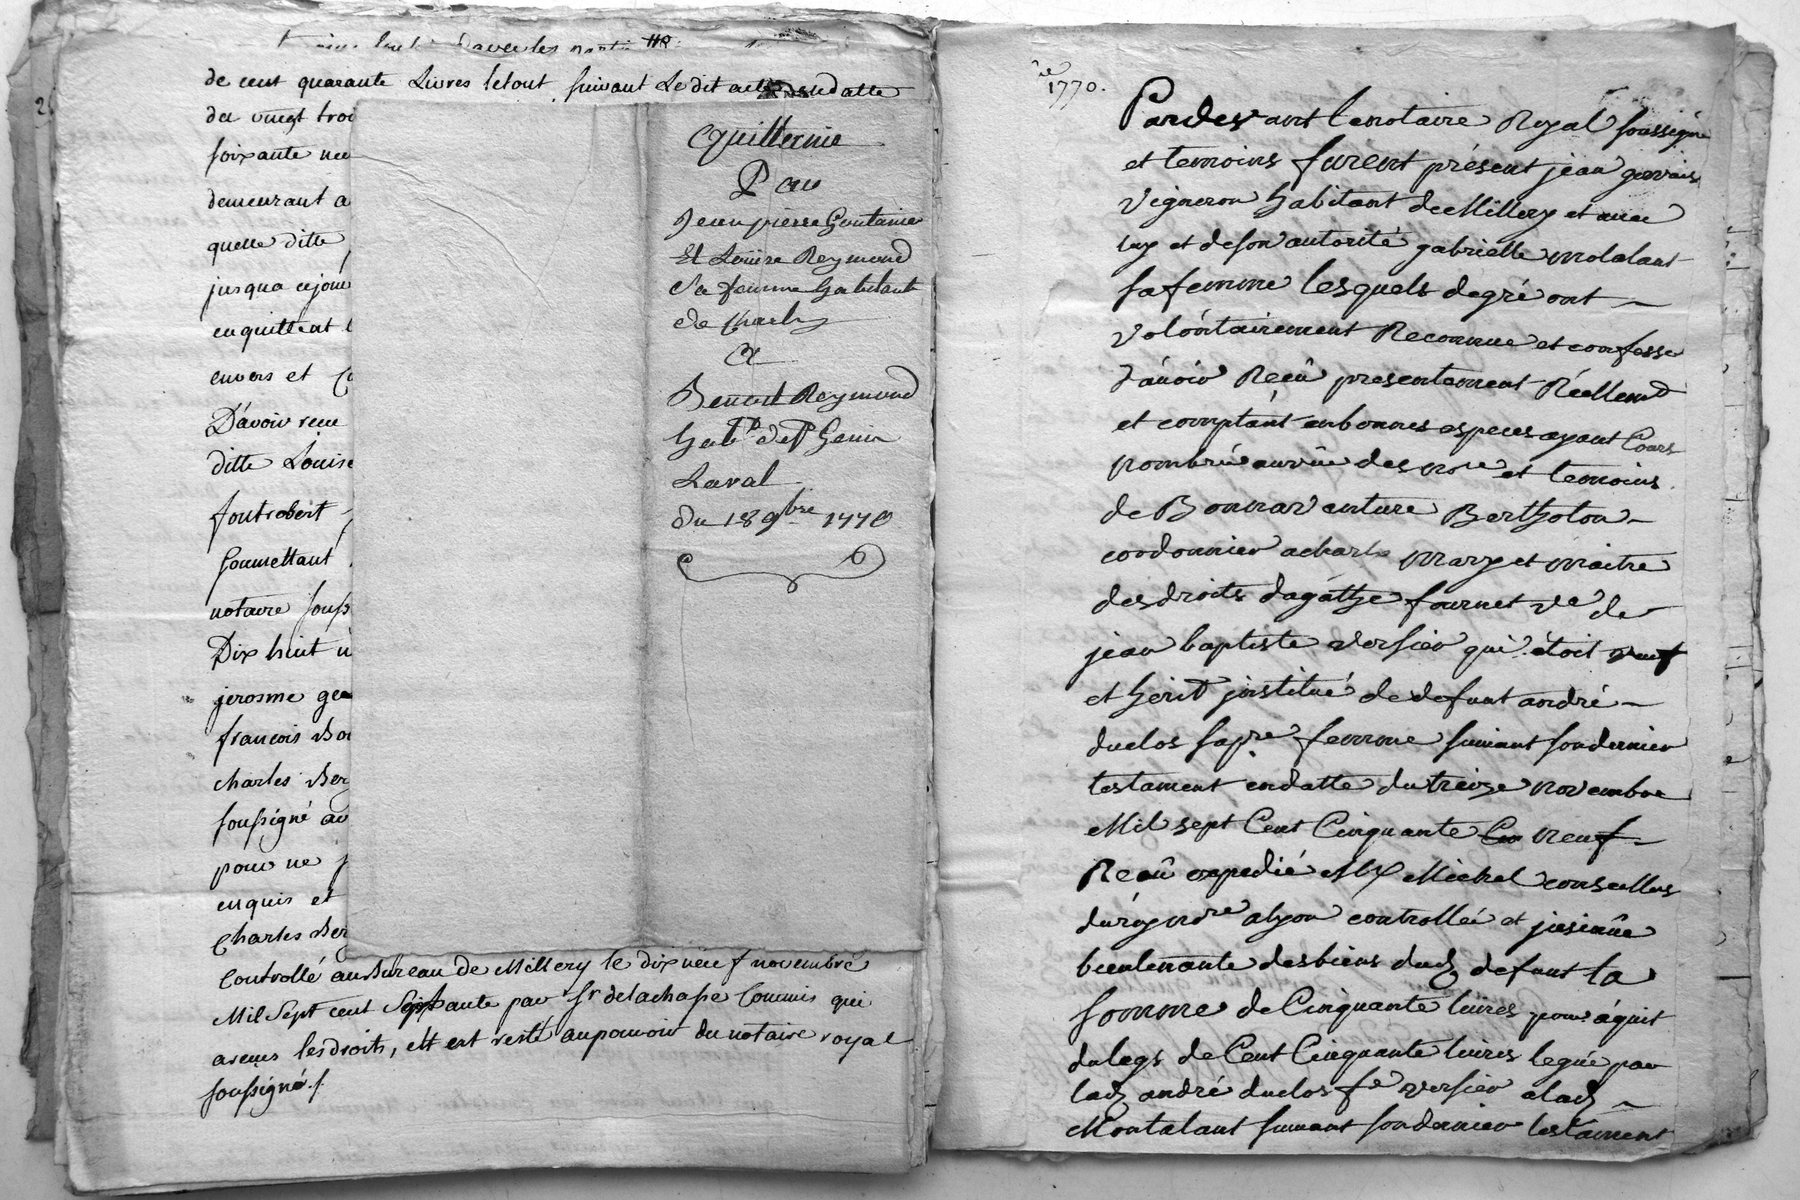 de cent quarante Livres letout suivant Ledit acte endatte
du vingt troi
soixante neu
demeurant a
quelle ditte
jusqua cejour
enquittent l
envers et Co
D'avoir receu
ditte Louise
font robert
Soumettant
notaire souss
Dix huit n
jerosme ge
francois Bo
charles Ber
soussigné au
pour ne p
enquis et
Charles Ber
Controllé au Bureau de Millery le dix neuf novembre
Mil Sept cent Septante par Sr delachasse Commis qui
areçus les droits, est resté aupouvoir du notaire royal
soussigné ./.
Quitternie
Par
Jean pierre Goutanier
Et Loüise Reymond
Sa femme habitants
de Charly
A
Benoit Reymond
habt de St Genin
Laval
du 18 9bre 1770
1770.
Pardevant lenotaire Royal soussigné
et temoins furent présent jean gervais
vigneron habitant de Millery et avec
luy et deson autorité gabrielle molalant
sa femme lesquels degré ont
volontairement Reconnue et confessé
d'avoir Reçû presentement Réellemt
et comptant enbonnes especes ayant Cours
nombré auvüe des nore et temoins
de Bonnaventure Bertholon
cordonnier acharly mary et maitre
desdroits dagathe fournet ve de
jean baptiste versier qui étoit veuf
et herit institué de defunt andré
duclos sa pre femme suivant sondernier
testament endatte du treize novembre
Mil sept Cent Cinquante neuf
Recû expedié Me Michel conseillers
duroy nore alyon controllée et jnsinüé
bientenante desbiens dud defunt la
somme de Cinquante livres pour aquit
dulegs de Cent Cinquante livres legué par
lad andré duclos fe versier alad
Montalant suivant sondernier testament